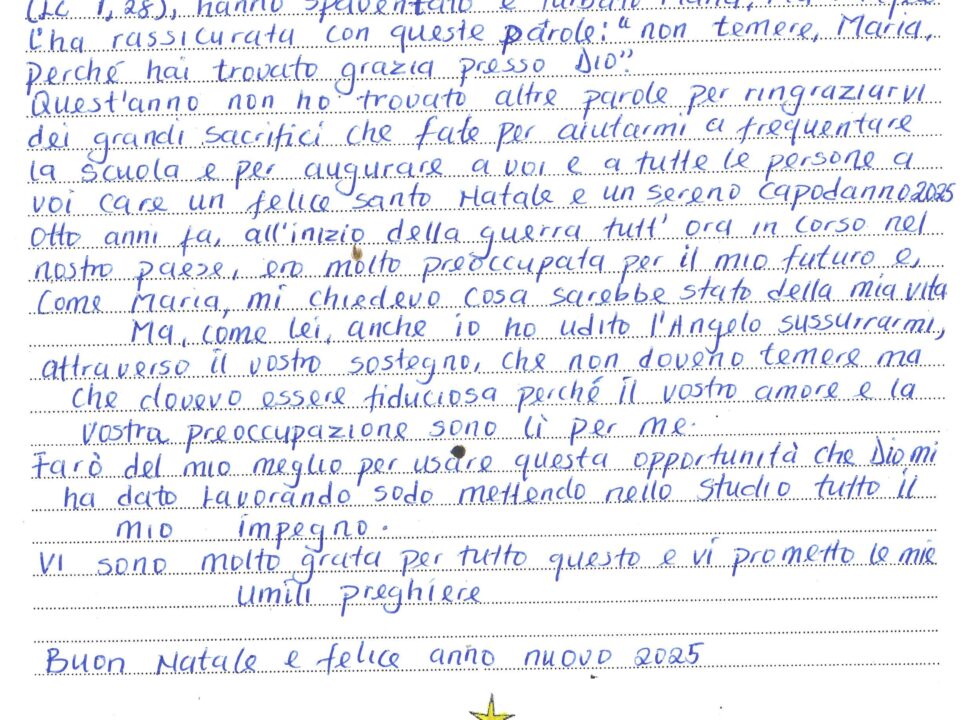 (Lc 1,28), hanno spaventato e turbato Maria,
l'ha rassicurata con queste parole: "non temere, Maria,
perché hai trovato grazia presso Dio".
Quest'anno non ho trovato altre parole per ringraziarvi
dei grandi sacrifici che fate per aiutarmi a frequentare
la scuola e per augurare a voi e a tutte le persone a
voi care un felice santo Natale e un sereno capodanno 2025
Otto anni fa, all'inizio della guerra tutt' ora in corso nel
nostro paese, ero molto preoccupata per il mio futuro e,
come Maria, mi chiedevo cosa sarebbe stato della mia vita
Ma, come lei, anche io ho udito l'Angelo sussurrarmi,
attraverso il vostro sostegno, che non doveno temere ma
che dovevo essere fiduciosa perché il vostro amore e la
vostra preoccupazione sono lì per me.
Farò del mio meglio per usare questa opportunità che Dio mi
ha dato lavorando sodo mettendo nello studio tutto il
mio impegno.
Vi sono molto grata per tutto questo e vi prometto le mie
umili preghiere
Buon Natale e felice anno nuovo 2025